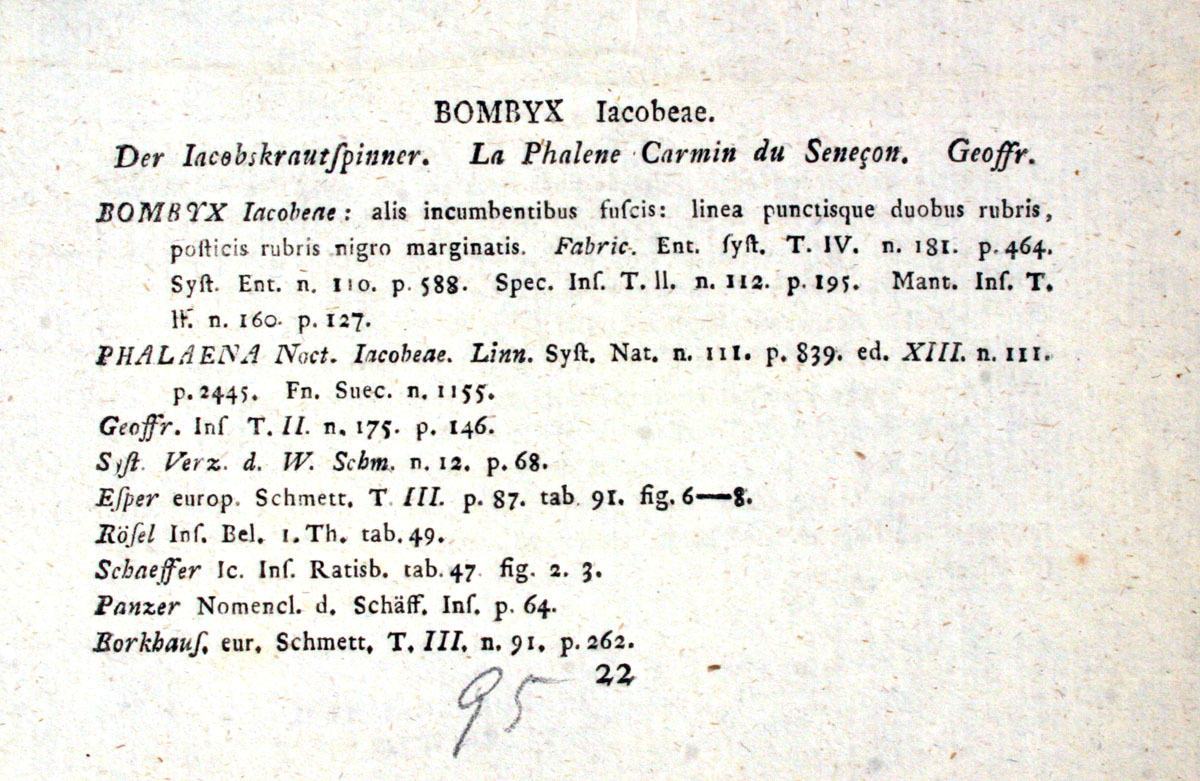 BOMBYX Iacobeae.
Der Iacobskrautſpinner. La Phalene Carmin du Seneçon. Geoffr.
BOMBYX Iacobeae: alis incumbentibus fuſcis: linea punctisque duobus rubris,
poſticis rubris nigro marginatis. Fabric. Ent. ſyſt. T. IV. n. 181. p. 464.
Syſt. Ent. n. 110. p. 588. Spec. Inſ. T. II. n. 112. p. 195. Mant. Inſ. T.
II. n. 160. p. 127.
PHALAENA Noct. Iacobeae. Linn. Syſt. Nat. n. 111. p. 839. ed. XIII. n. 111.
p. 2445. Fn. Suec. n. 1155.
Geoffr. Inſ T. II. n. 175. p. 146.
Syſt. Verz. d. W. Schm. n. 12. p. 68.
Eſper europ. Schmett. T III. p. 87. tab 91. fig. 6—8.
Röſel Inſ. Bel. 1. Th. tab. 49.
Schaeffer Ic. Inſ. Ratisb. tab. 47 fig. 2. 3.
Panzer Nomencl. d. Schäff. Inſ. p. 64.
Borkhauſ. eur. Schmett. T. III. n. 91. p. 262.
22
95